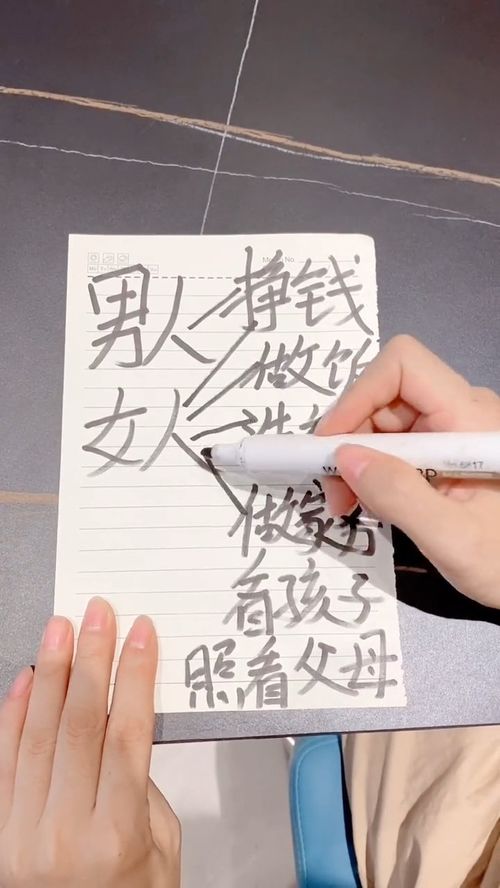 男人 挣钱
做饭
女人 洗
做家务
看孩子
照看父母